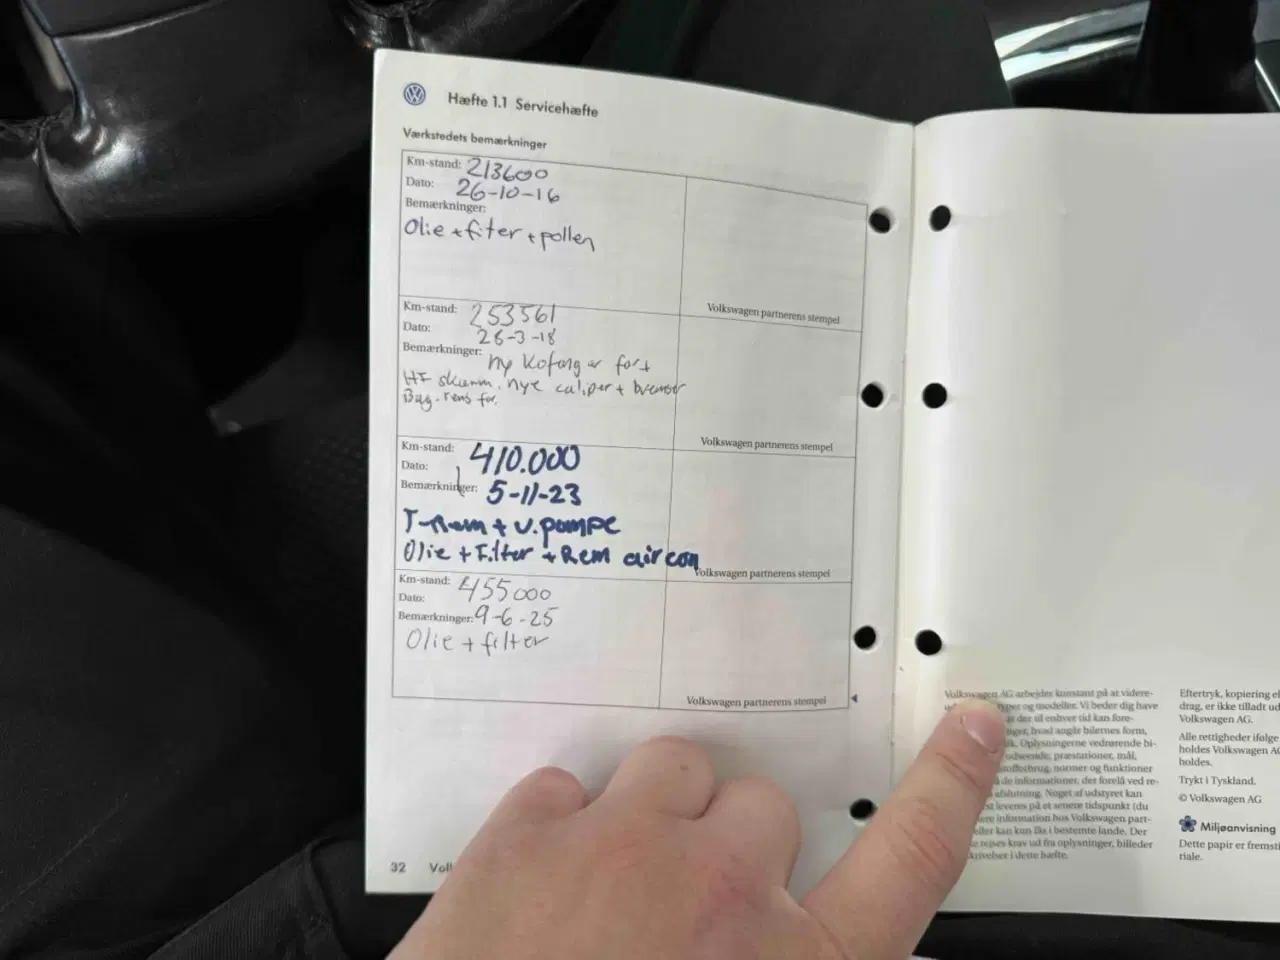 Hæfte 1.1 Servicehæfte
Værkstedets bemærkninger
Km-stand: 213600
Dato: 26-10-16
Bemærkninger:
Olie + filter + pollen
Volkswagen partnerens stempel
Km-stand: 253561
Dato: 26-3-18
Bemærkninger: ny Kofanger for +
skærm. nye caliper + bremser
Bag. rens for.
Volkswagen partnerens stempel
Km-stand: 410.000
Dato:
Bemærkninger: 5-11-23
T-Rem + v.pumpe
Olie + Filter + Rem air con
Volkswagen partnerens stempel
Km-stand: 455000
Dato:
Bemærkninger: 9-6-25
Olie + filter
Volkswagen partnerens stempel
32
Volkswagen AG arbejder konstant på at videre-
typer og modeller. Vi beder dig have
at der til enhver tid kan fore-
hvad angår bilernes form,
Oplysningerne vedrørende bi-
udseende, præstationer, mål,
normer og funktioner
de informationer, der forelå ved re-
afslutning. Noget af udstyret kan
leveres på et senere tidspunkt (du
information hos Volkswagen part-
kan kun fås i bestemte lande. Der
rejses krav ud fra oplysninger, billeder
i dette hæfte.
Eftertryk, kopiering el
drag, er ikke tilladt ud
Volkswagen AG.
Alle rettigheder ifølge
holdes Volkswagen AG
holdes.
Trykt i Tyskland.
© Volkswagen AG
Miljøanvisning
Dette papir er fremsti
riale.